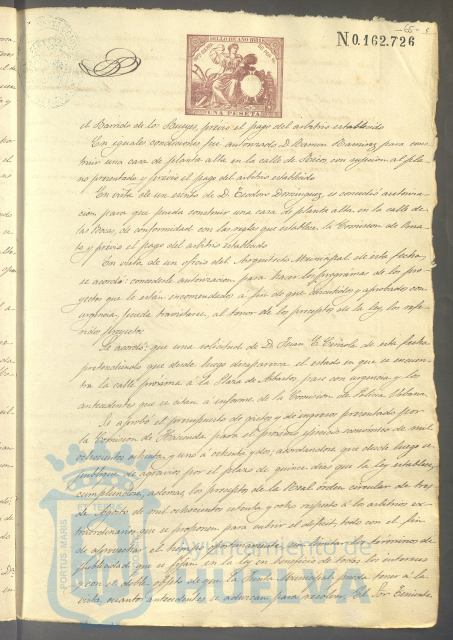 N 0.162.726
UNA PESETA
el Barrido de los Bueyes, prévio el pago del arbitrio establecido
En iguales condiciones fue autorizado D. Ramon Ramirez para cons-
truir una casa de planta alta en la calle de con sujecion al pla-
no presentado y prévio el pago del arbitrio establecido
En vista de un escrito de D. Teodoro Dominguez se concedió autoriza-
cion para que pueda construir una casa de planta alta en la calle de
las Bocas, de conformidad con las reglas que establece la Comision de Orna-
to y prévio el pago del arbitrio establecido
En vista de un oficio del Arquitecto Municipal de esta fecha,
se acordó: concederle autorizacion para hacer los programas de los pro-
yectos que le están encomendados á fin de que discutidos y aprobados con
urgencia, pueda tramitarse, al tenor de los preceptos de la ley, los refe-
ridos proyectos
Se acordó: que una solicitud de D. Juan de esta fecha
pretendiendo que desde luego desaparezca el estado en que se encuen-
tra la calle próxima á la Plaza de Abastos, pase con urgencia y los
antecedentes que se citan á informe de la Comision de Policia Urbana
Se aprobó el presupuesto de gastos y de ingresos presentado por
la Comision de Hacienda para el próximo ejercicio económico de mil
ochocientos ochenta y uno á ochenta y dos; acordandose que desde luego se
publique de agravios por el plazo de quince dias que la ley establece,
cumpliendose, ademas, los preceptos de la Real órden circular de tres
de Agosto de mil ochocientos setenta y ocho respecto á los arbitrios ex-
traordinarios que se proponen para cubrir el déficit, todo con el fin
de aprovechar el tiempo y sin los términos de
publicidad que se fijan en la ley en beneficio de todos los intereses
y con el doble objeto de que la Junta Municipal pueda tener á la
vista cuantos antecedentes se aduzcan para resolver. El Sor Teniente
PORTUS MARIS
Ayuntamiento de
HUELVA